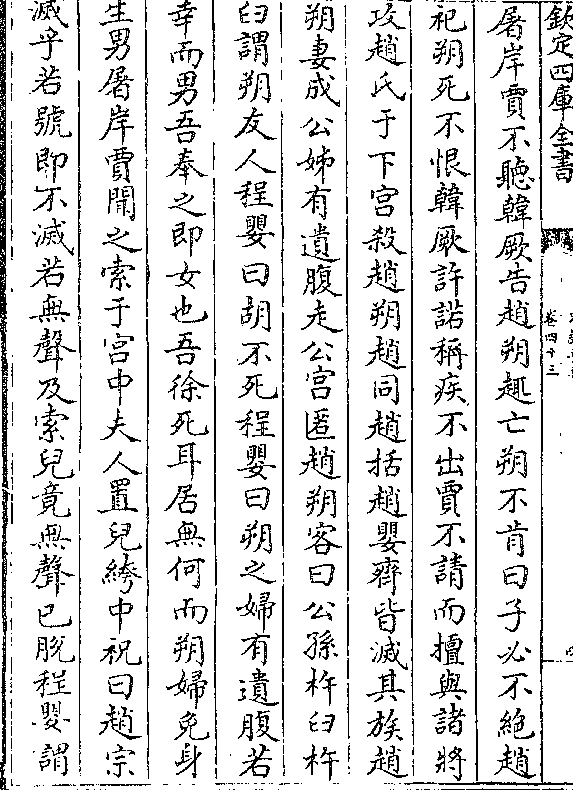 欽定四庫全書
卷四十三
屠岸賈不聽韓厥告趙朔趣亡朔不肯曰子必不絶趙
祀朔死不恨韓厥許諾稱疾不出賈不請而擅與諸將
攻趙氏于下宫殺趙朔趙同趙括趙嬰齊皆滅其族趙
朔妻成公姊有遺腹走公宫匿趙朔客曰公孫杵臼杵
臼謂朔友人程嬰曰胡不死程嬰曰朔之婦有遺腹若
幸而男吾奉之即女也吾徐死耳居無何而朔婦免身
生男屠岸賈聞之索于宫中夫人置兒絝中祝曰趙宗
滅乎若號即不滅若無聲及索兒竟無聲已脱程嬰謂